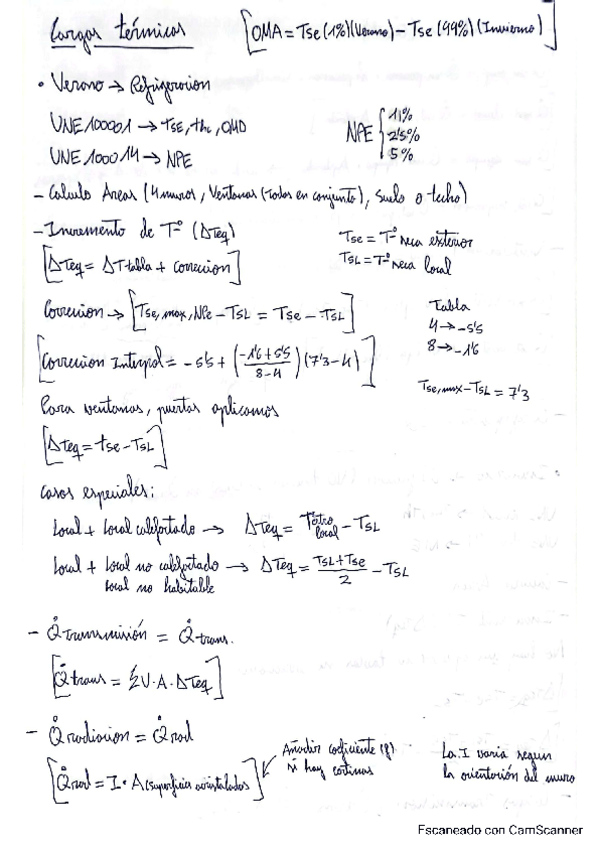 Cargas térmicas [OMA = Tse (1%)(Verano) - Tse (99%)(Invierno)]
• Verano → Refrigeracion
UNE 100001 → TSE, thc, OMD
UNE 100014 → NPE
NPE { 1% 2'5% 5%
- Calculo Areas (4 muros, Ventanas (todas en conjunto), Suelo o techo)
- Incremento de Tª (ΔTeq)
Tse = Tª seca exterior
TSL = Tª seca local
[ΔTeq = ΔT tabla + correccion]
Correccion → [Tse, max, NPe - TSL = Tse - TSL]
Tabla
4 → -5'5
8 → -1'6
[Correccion Interpol = -5'5 + (-1'6 + 5'5 / 8 - 4) (7'3 - 4)]
Tse, max - TSL = 7'3
Para ventanas, puertas aplicamos
[ΔTeq = tse - TSL]
Casos especiales:
Local + Local calefactado → ΔTeq = Totro local - TSL
Local + Local no calefactado → ΔTeq = TSL + Tse / 2 - TSL
Local no habitable
- Q̇ transmisión = Q̇ trans.
[Q̇ trans = ΣU·A·ΔTeq]
- Q̇ radiacion = Q̇ rad
[Q̇ rad = I · A (superficies acristaladas)]
Añadir coeficiente (f) si hay cortinas
La I varia segun
la orientación del muro
Escaneado con CamScanner